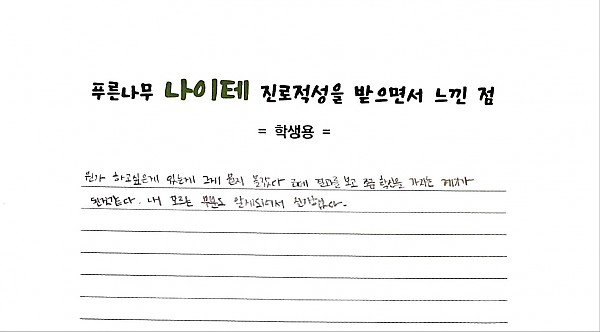 푸른나무 나이테 진로적성을 받으면서 느낀 점
= 학생용 =
뭔가 하고싶은게 있는데 그게 뭔지 몰랐다 근데 결과를 보고 조금 확신을 가지는 계기가
된거같다. 내 모르는 부분도 알게되어서 신기했다.